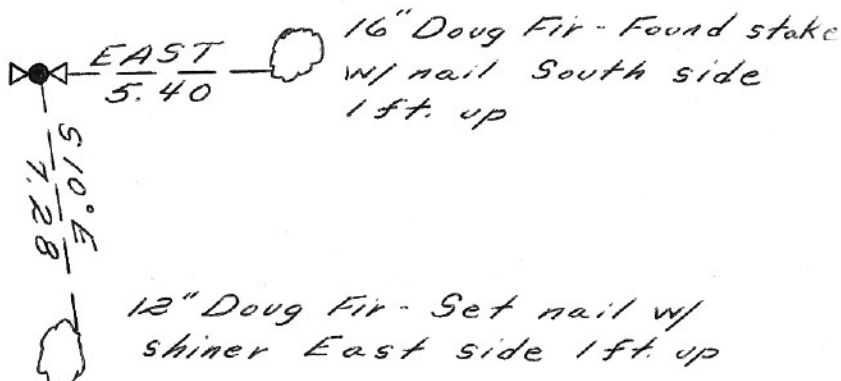 16" Doug Fir - Found stake
EAST
w/ nail South side
5.40
1 ft. up
S 10° E
7.28
12" Doug Fir - Set nail w/
shiner East side 1 ft. up